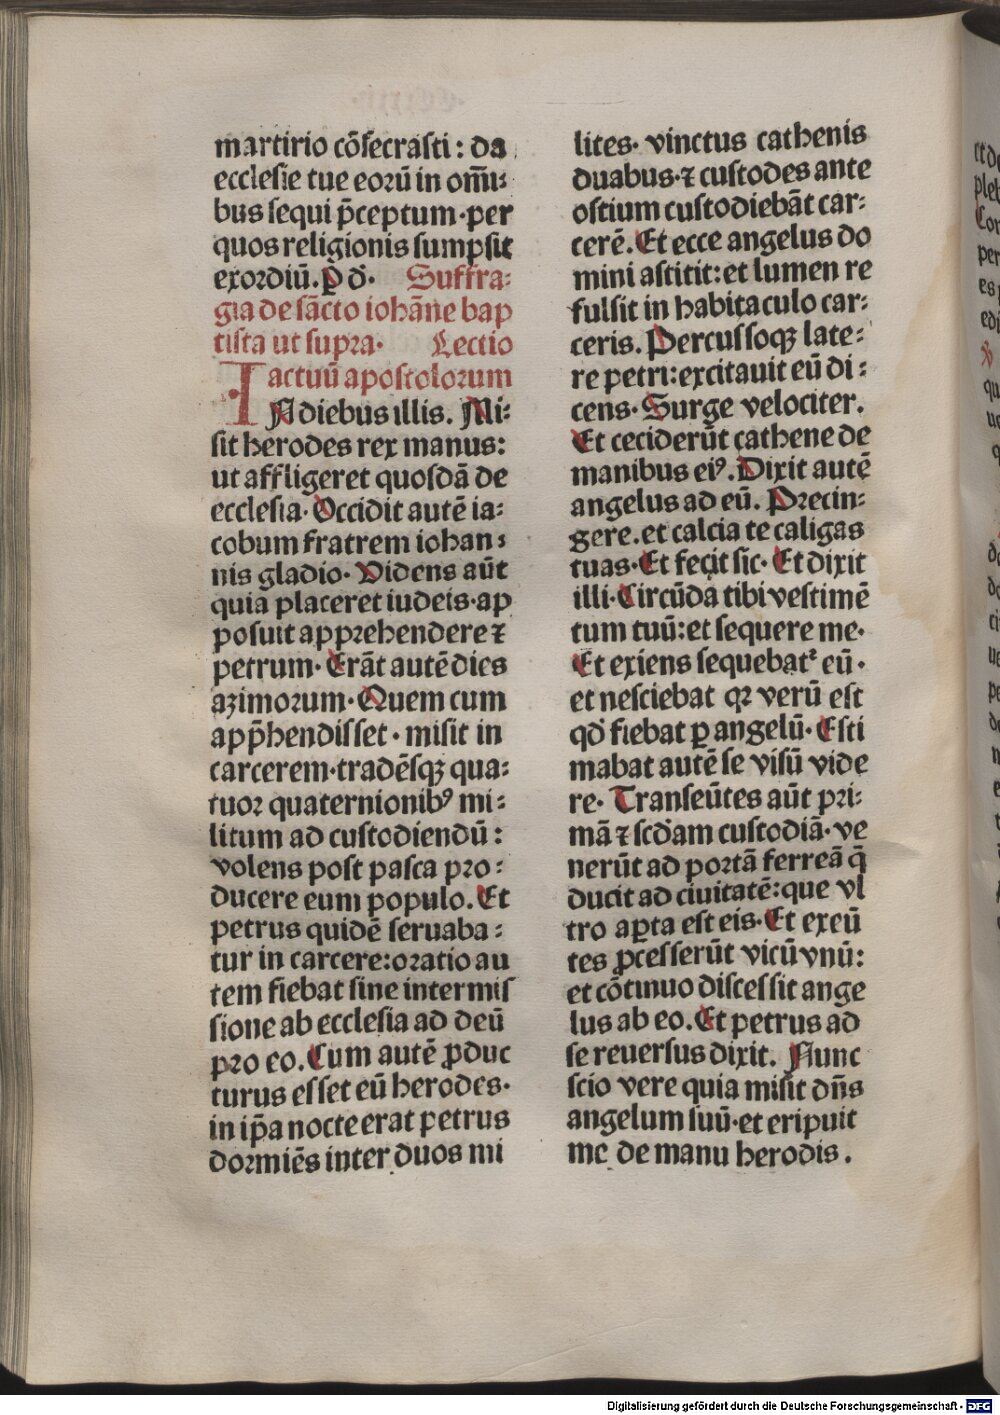 martirio cõſecraſti : da
eccleſie tue eoꝝũ in om̃i⸗
bus ſequi p̃ceptum·per
quos religionis ſumpſit
exoꝛdiũ. P̲ d̃· Suffra⸗
gia de ſãcto iohãne bap
tiſta ut ſupra· Lectio
actuũ apoſtoloꝛum
IN diebus illis. Mi⸗
ſit herodes rex manus:
ut affligeret quoſdã de
eccleſia· Occidit autẽ ia⸗
cobum fratrem iohan⸗
nis gladio· Videns aũt
quia placeret iudeis·ap
poſuit appꝛehendere ⁊
petrum· Erãt autẽ dies
aʒimoꝛum· Quem cum
app̃hendiſſet · miſit in
carcerem·tradẽſqꝫ qua⸗
tuoꝛ quaternionibꝰ mi⸗
litum ad cuſtodiendũ :
volens poſt paſca pꝛo⸗
ducere eum populo. Et
petrus quidẽ ſeruaba⸗
tur in carcere:oꝛatio au
tem fiebat ſine intermiſ
ſione ab eccleſia ad deũ
pꝛo eo. Cum autẽ ꝓduc
turus eſſet eũ herodes·
in ip̃a nocte erat petrus
doꝛmiẽs inter duos mi
lites· vinctus cathenis
duabus·⁊ cuſtodes ante
oſtium cuſtodiebãt car⸗
cerẽ. Et ecce angelus do
mini aſtitit:et lumen re
fulſit in habitaculo car⸗
ceris. Percuſſoqꝫ late⸗
re petri:excitauit eũ di⸗
cens· Surge velociter.
Et ceciderũt cathene de
manibus eiꝰ. Dixit autẽ
angelus ad eũ. Pꝛecin⸗
gere.et calcia te caligas
tuas· Et fecit ſic· Et dixit
illi· Circũda tibi veſtimẽ
tum tuũ:et ſequere me·
Et exiens ſequebat᷑ eũ ·
et neſciebat qꝛ verũ eſt
qd̃ fiebat ꝑ angelũ· Eſti
mabat autẽ ſe viſũ vide
re· Tranſeũtes aũt pꝛi⸗
mã ⁊ ſcd̃am cuſtodiã· ve
nerũt ad poꝛtã ferreã q̃
ducit ad ciuitatẽ:que vl
tro aꝑta eſt eis· Et exeũ
tes ꝓceſſerũt vicũ vnũ:
et cõtinuo diſceſſit ange
lus ab eo. Et petrus ad
ſe reuerſus dixit. Nunc
ſcio vere quia miſit dñs
angelum ſuũ·et eripuit
me de manu herodis .
Digitalisierung gefördert durch die Deutsche Forschungsgemeinschaft - DFG